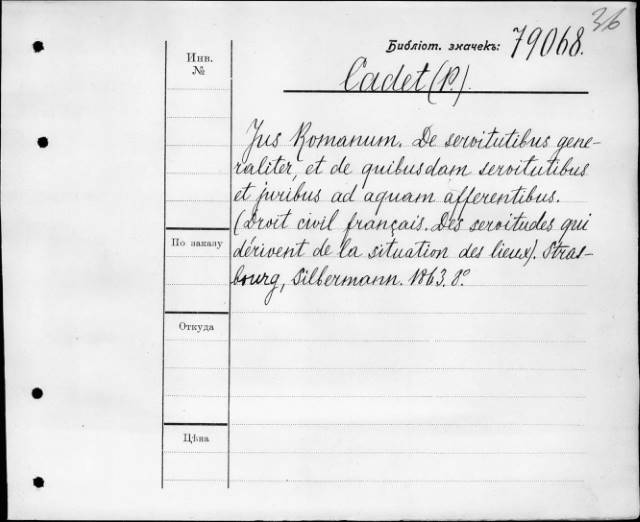 36
Библіот. значекъ: 79068.
Инв.
№
Cadet (P.).
Jus Romanum. De servitutibus gene-
raliter, et de quibusdam servitutibus
et juribus ad aquam afferentibus.
(Droit civil français. Des servitudes qui
По заказу
dérivent de la situation des lieux). Stras-
bourg, Silbermann. 1863. 8°.
Откуда
Цѣна